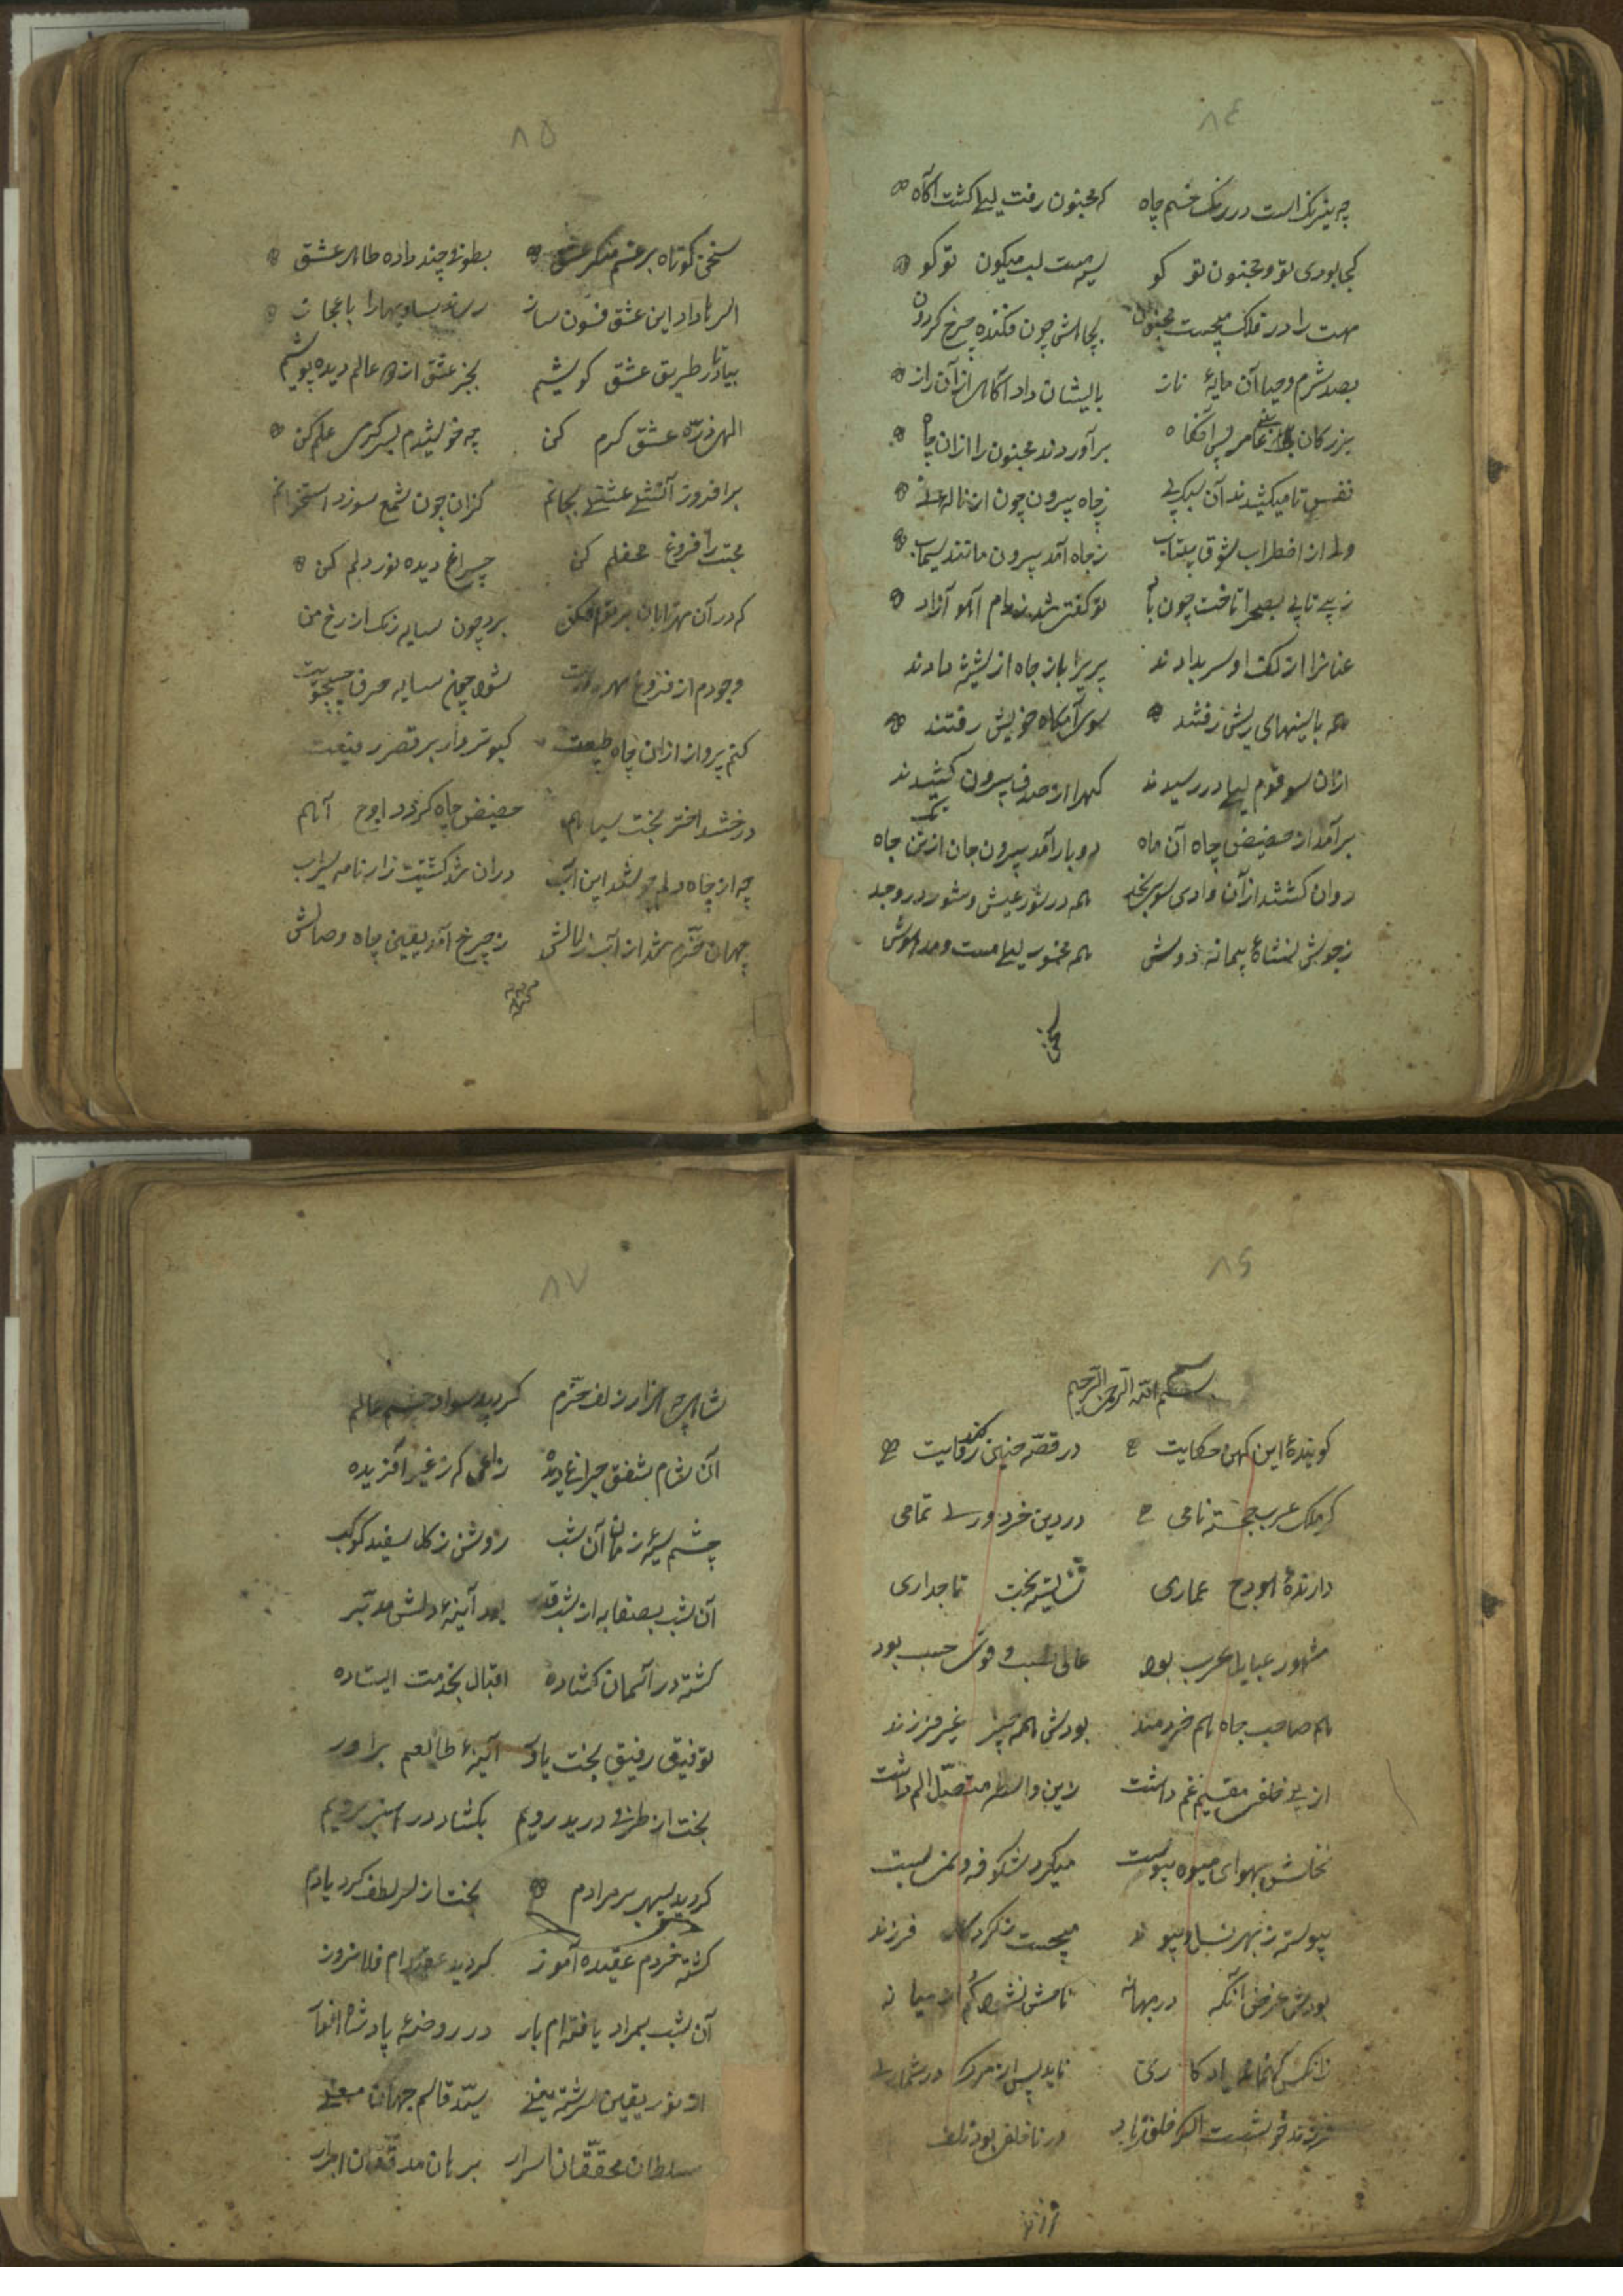 ٨٤
چه نیرنک است در رنک خم چاه که مجنون رفت لیلی کشت آکاه
کجا بودی تو و مجنون تو کو سیه مست لب میکون تو کو
مهت را در فلک پیچیست مجنون بچاهش چون فکنده چرخ کردون
بصد شرم و حیا آن مایهٔ ناز بایشان داد آکاهی از آن راز
بزرکان بنی عامر پس آنکاه برآوردند مجنون را از آن چاه
نفس تا میکشیدند آن سبک پی ز چاه بیرون چون از ناله
ولی از اضطراب شوق بیتاب ز چاه آمد بیرون مانند سیماب
ز بی تابی بصحرا تاخت چون باد تو کفتی شد ز دام آهو آزاد
عنانرا از کف او سر بدادند پریرا باز جاه از شیشه دادند
همه با سینهای ریش رفتند سوی آرامکاه خویش رفتند
ازان سو قوم لیلی در رسیدند کهرا از صدف بیرون کشیدند
برآمد از حضیض چاه آن ماه دوبار آمد بیرون جان از تن چاه
روان کشتند از آن وادی سوی نجد همه در شور عیش و شور در وجد
ز جوش نشاهٔ پیمانه دوش همه مجنون لیلی مست و مدهوش
سخن
٨٥
سخن کوتاه بر غم منکر عشق بطونی چند داده طاهر عشق
الهی داد این عشق فسون ساز رساند بیدلیها را باعجاز
بیا تا در طریق عشق کوشیم بجز عشق از دو عالم دیده پوشیم
الهی ذره عشق کرم کن چو خورشیدم بسرکرمی علم کن
برافروز آتش عشقی بجانم کزان چون شمع سوزد استخوانم
محبت را فروغ محفلم کن چراغ دیده نور دلم کن
که در آن مهر تابان پرتو افکن برد چون سایه زنک از رخ من
وجودم از فروغ مهر شود چون سایه صرف جستجویت
کنم پرواز ازین چاه طبیعت کبوتر وار بر قصر رفیعت
درخشد اختر بخت سیاهم حضیض چاه کردد اوج آنهم
چو از چاه دلم جوشد این آب دران شد کشتیت زار نامه سیراب
جهان خرم شد از آب زلالش ز چرخ آمد یقین چاه وصالش
٨٦
بسم الله الرحمن الرحیم
کویندهٔ این کهن حکایت در قصه چنین کند روایت
کز ملک عرب خجسته نامی در دین خرد ورای تمامی
دارندهٔ هودج عماری شایسته تخت تاجداری
مشهور عبایل عرب بود عالی نسب و قوی حسب بود
هم صاحب جاه هم خردمند بودش همه چیز غیر فرزند
از بی خلفی مقیم غم داشت زین واسطه متصل الم داشت
نخلش بهوای میوه پیوست میکرد شکوفه و نمی بست
پیوسته ز بهر نسل و پیوند میجست ز کردکار فرزند
بودش غرض آنکه در میانه نامش نشود کم از میانه
زانکس که نماند یادکاری ناید پس از مرک در شماری
فرزند خوشست اکر خلف زاید ور ناخلف بود تلف
٨٧
شامی چو هزار زلف خرم کردید سواد چشم عالم
آن شام شفق چراغ دیده زاغی که ز غیر آفریده
چشم سیه زمان آن شب روشن ز کل سفید کوکب
آن شب بصفا به از شب قدر بود آینهٔ دلش مدبر
کشته در آسمان کشاده اقبال بخدمت ایستاده
توفیق رفیق بخت یاور آئینهٔ طالعم برابر
بخت از طرفی دوید رویم بکشاد در امید برویم
کردید سپهر بر مرادم بخت از لطف کرد یادم
کشته خردم عقیده آموز کردید عقیده ام دل افروز
آن شب بمراد یافته ام بار در روضهٔ پادشاه
او نور یقین سرشته یعنی سید قاسم جهان معنی
سلطان محققان اسرار برهان مدققان ابرار